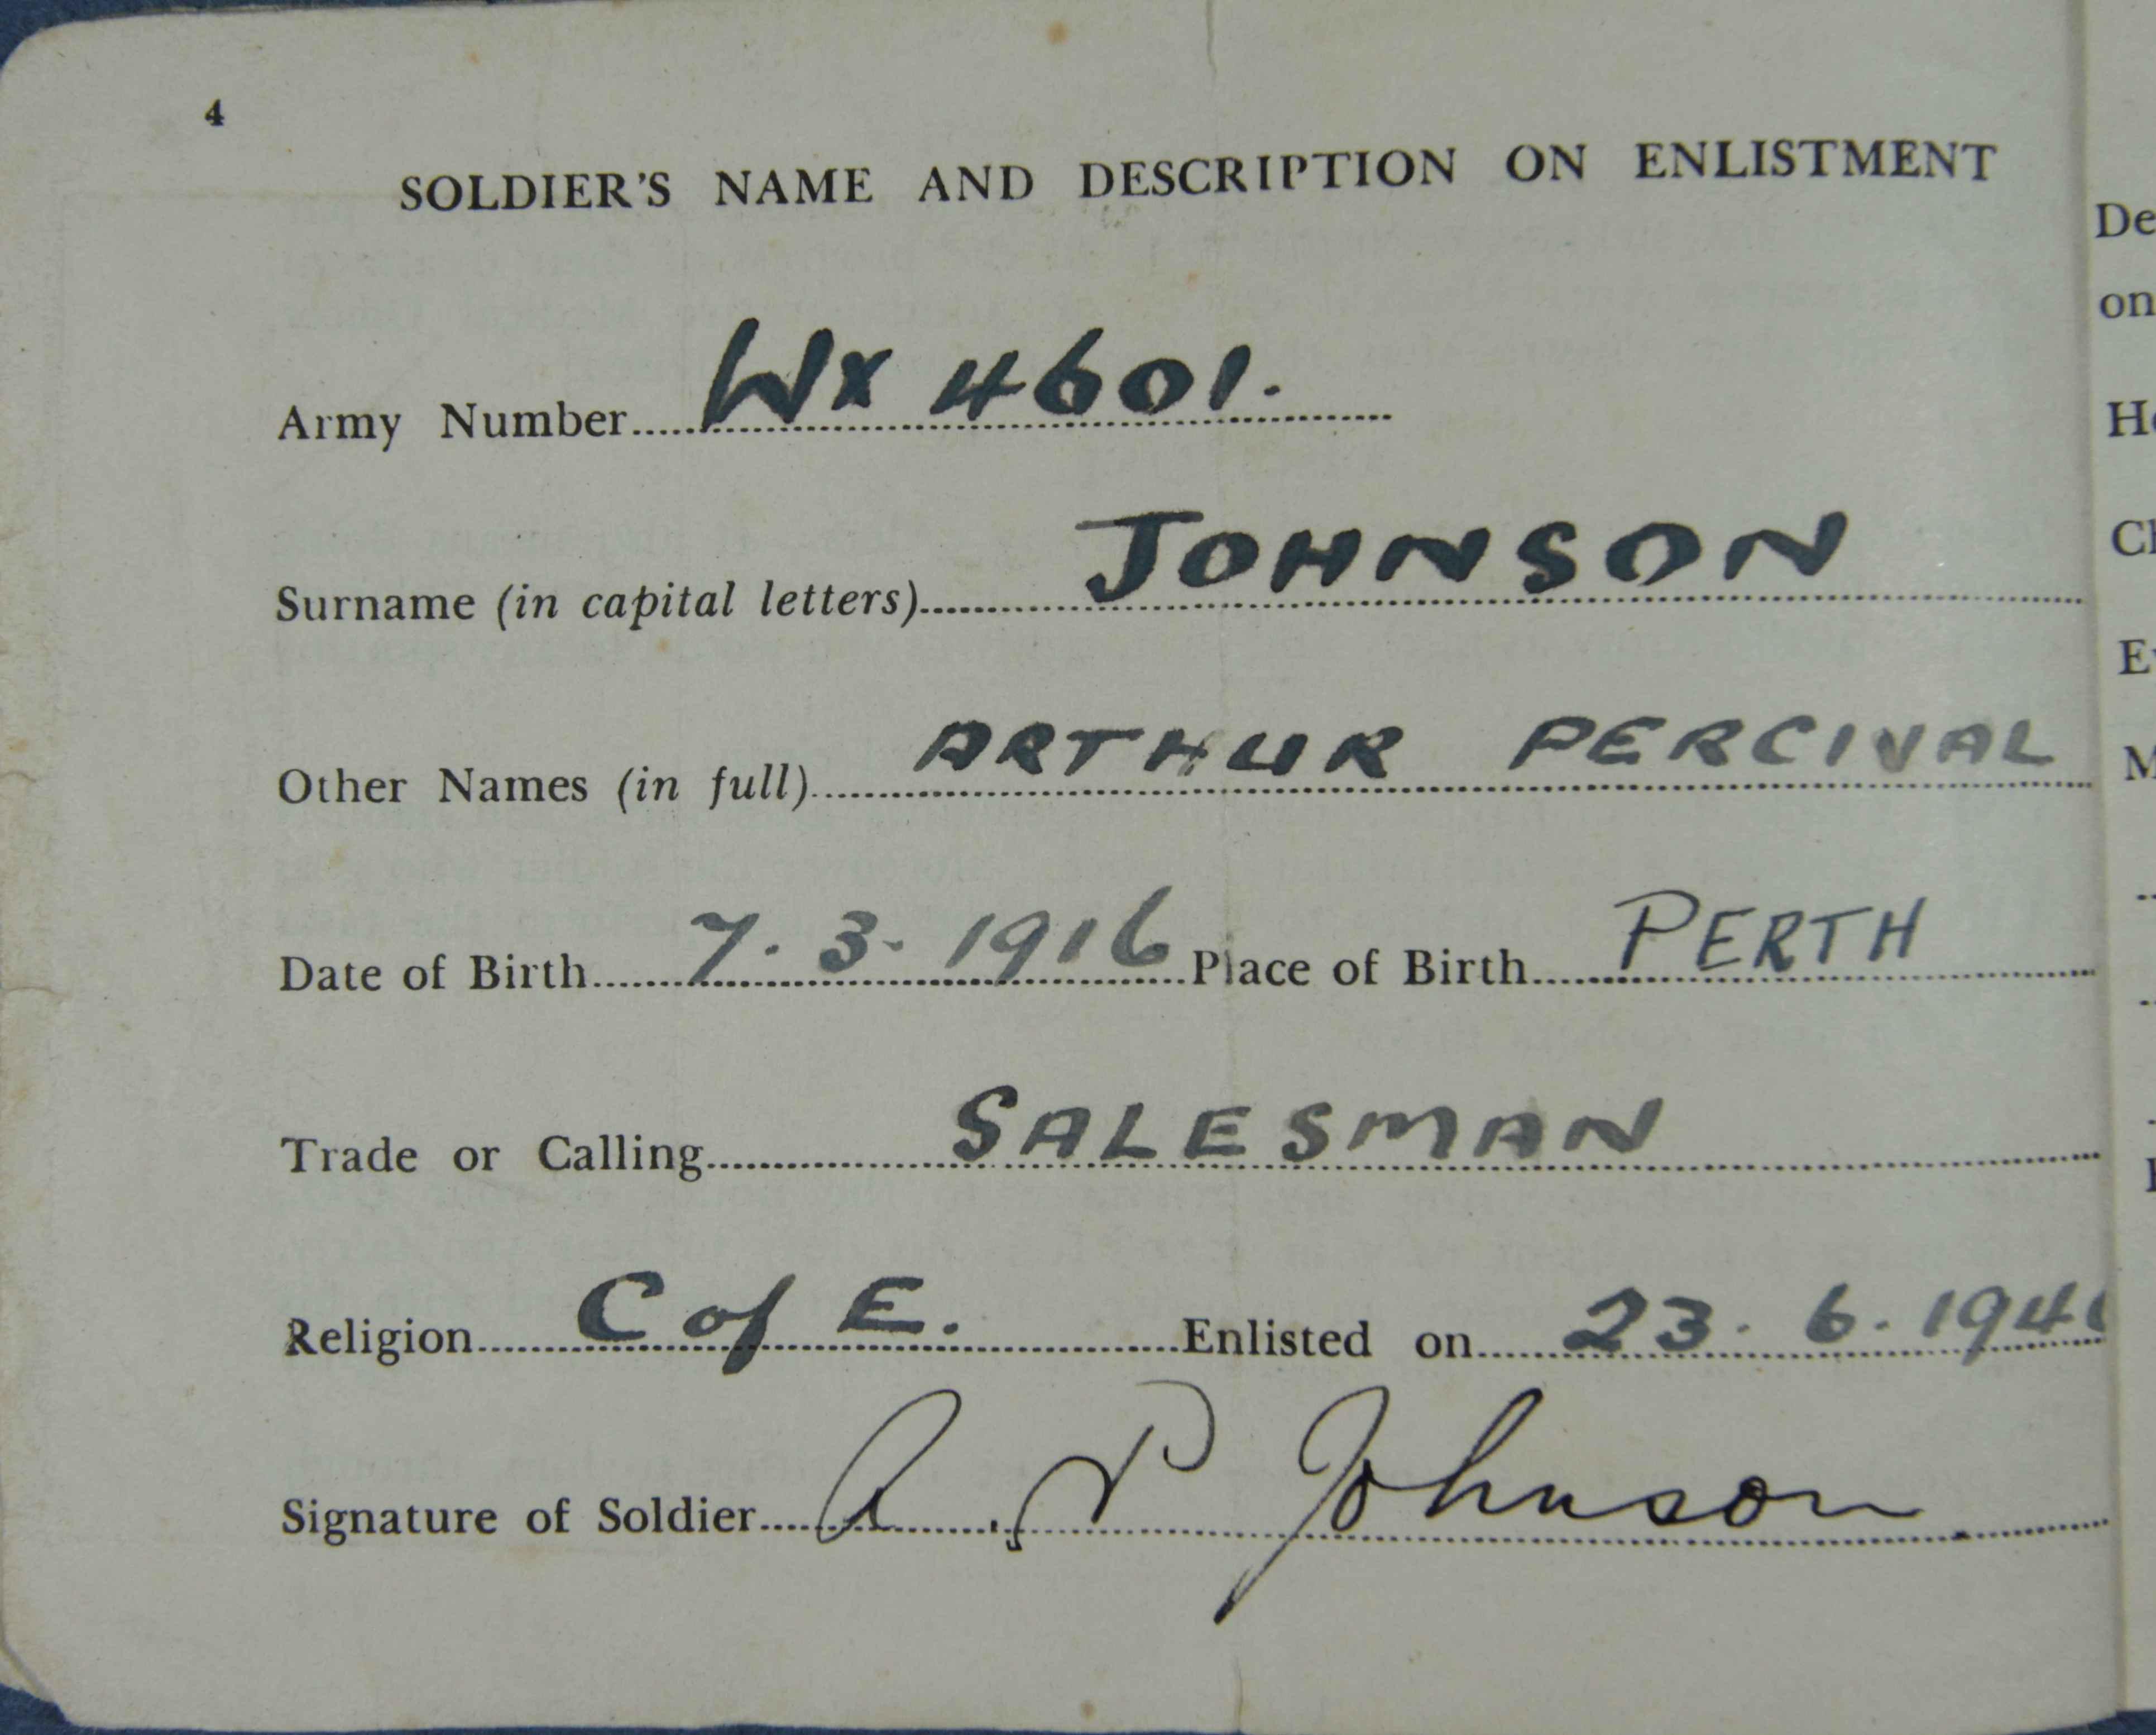 4
SOLDIER'S NAME AND DESCRIPTION ON ENLISTMENT
Army Number WX 4601.
Surname (in capital letters) JOHNSON
Other Names (in full) ARTHUR PERCIVAL
Date of Birth 7.3.1916 Place of Birth PERTH
Trade or Calling SALESMAN
Religion C of E. Enlisted on 23.6.194
Signature of Soldier A. P Johnson.
De
on
H
Ch
E
M